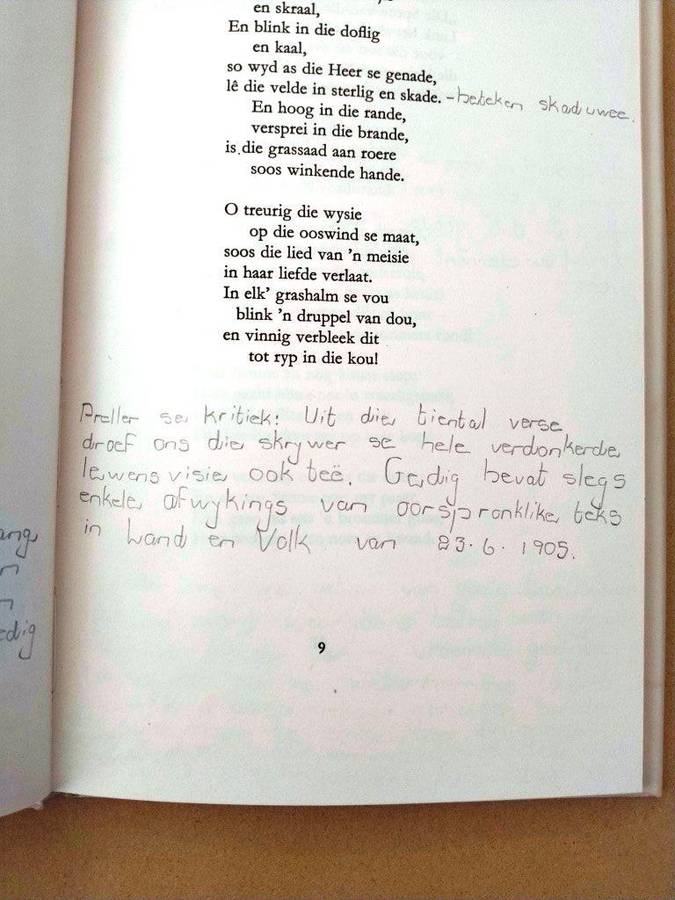 en skraal,
En blink in die doflig
en kaal,
so wyd as die Heer se genade,
lê die velde in sterlig en skade. – beteken skaduwee.
En hoog in die rande,
versprei in die brande,
is die grassaad aan roere
soos winkende hande.
O treurig die wysie
op die ooswind se maat,
soos die lied van 'n meisie
in haar liefde verlaat.
In elk' grashalm se vou
blink 'n druppel van dou,
en vinnig verbleek dit
tot ryp in die kou!
Preller se kritiek: Uit die tiental verse
droef ons die skrywer se hele verdonkerde
lewensvisie ook teë. Gedig bevat slegs
enkele afwykings van oorspronklike teks
in Land en Volk van 23.6.1905.
9